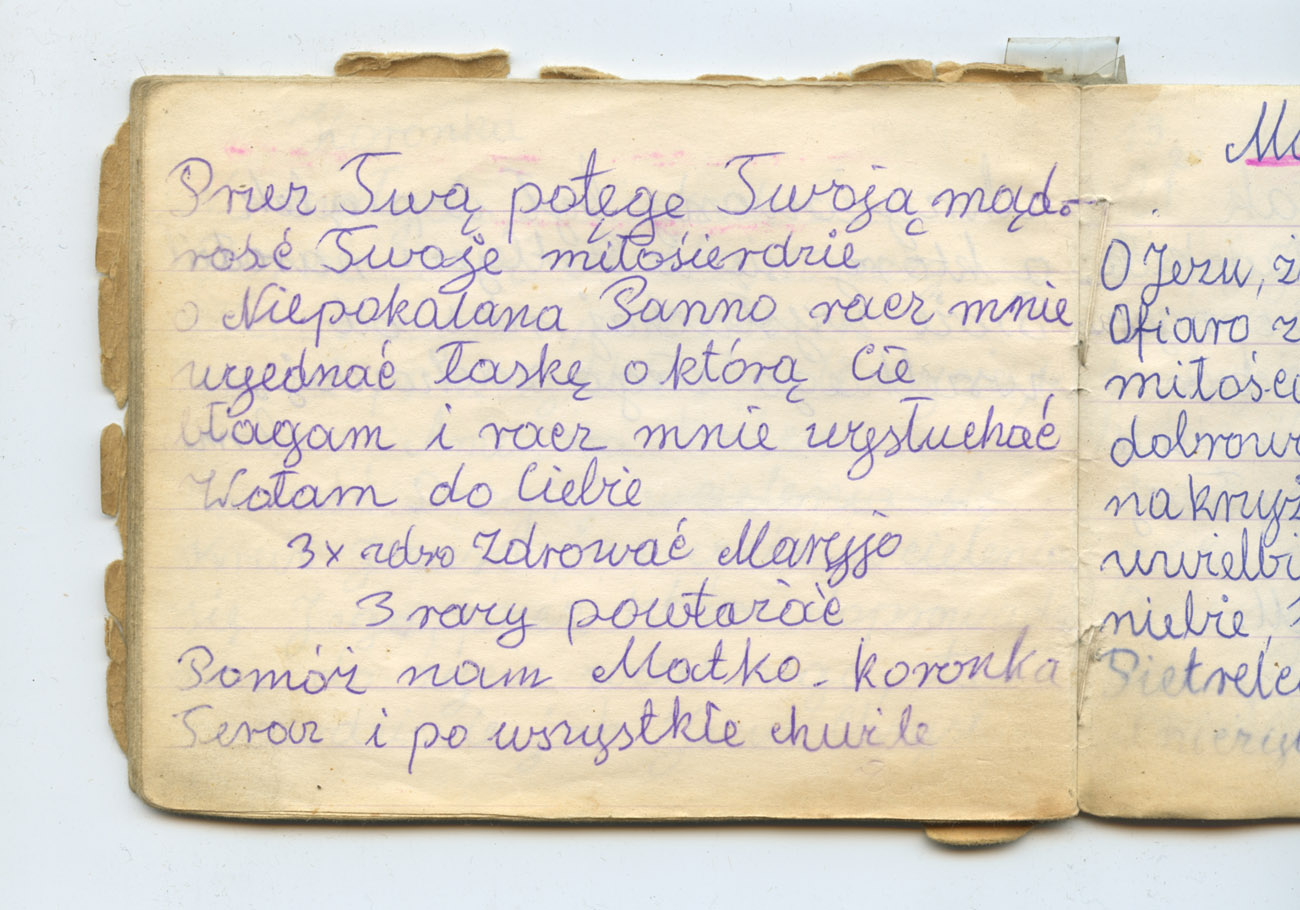 Przez Twą potęgę Twoją mąd-
rość Twoje miłosierdzie
o Niepokalana Panno racz mnie
wyjednać łaskę o którą Cię
błagam i racz mnie wysłuchać
Wołam do Ciebie
3x zdro Zdrować Maryjo
3 razy powtażać
Pomóż nam Matko. Koronka
Teraz i po wszystkie chwile
O Jezu,
Ofiaro z
miłości
dobrow
na krzyż
uwielbi
niebie,
Pietrelc